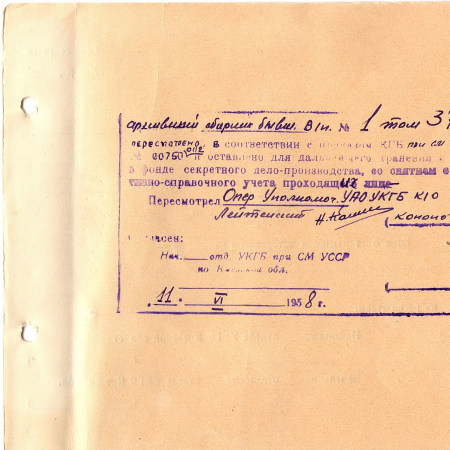 архивный сборник бывш. ВIн. № 1 том 37
пересмотрено в соответствии с приказом КГБ при СМ
№ 00750 и оставлено для дальнейшего хранения
в фонде секретного дело-производства, со снятием с
тивно-справочного учета проходящих лиц
Пересмотрел Опер Уполномоч. УАО УКГБ К10
Лейтенант
Согласен:
Нач. отд. УКГБ при СМ УССР
по Киевской обл.
11 VI 1958 г.